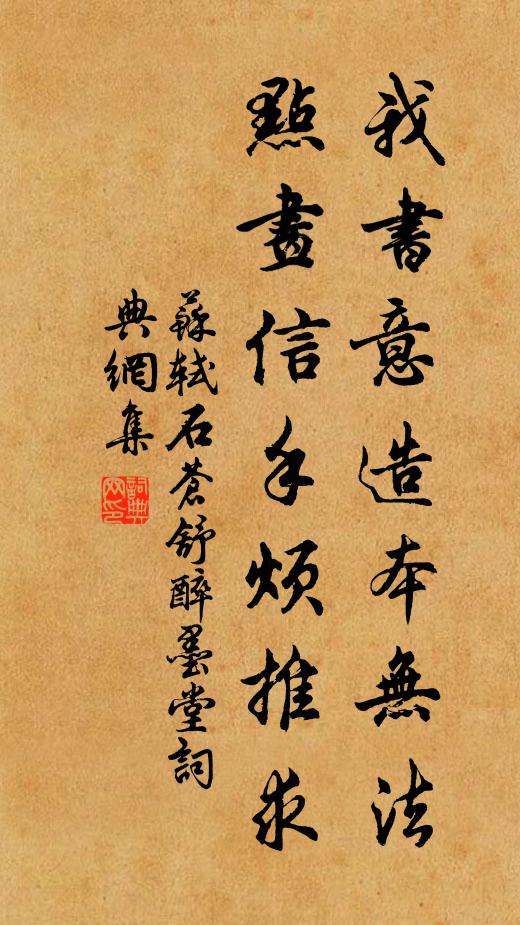 我書意造本無法
點畫信手煩推求
蘇軾石蒼舒醉墨堂詞
典網集
詞典网印